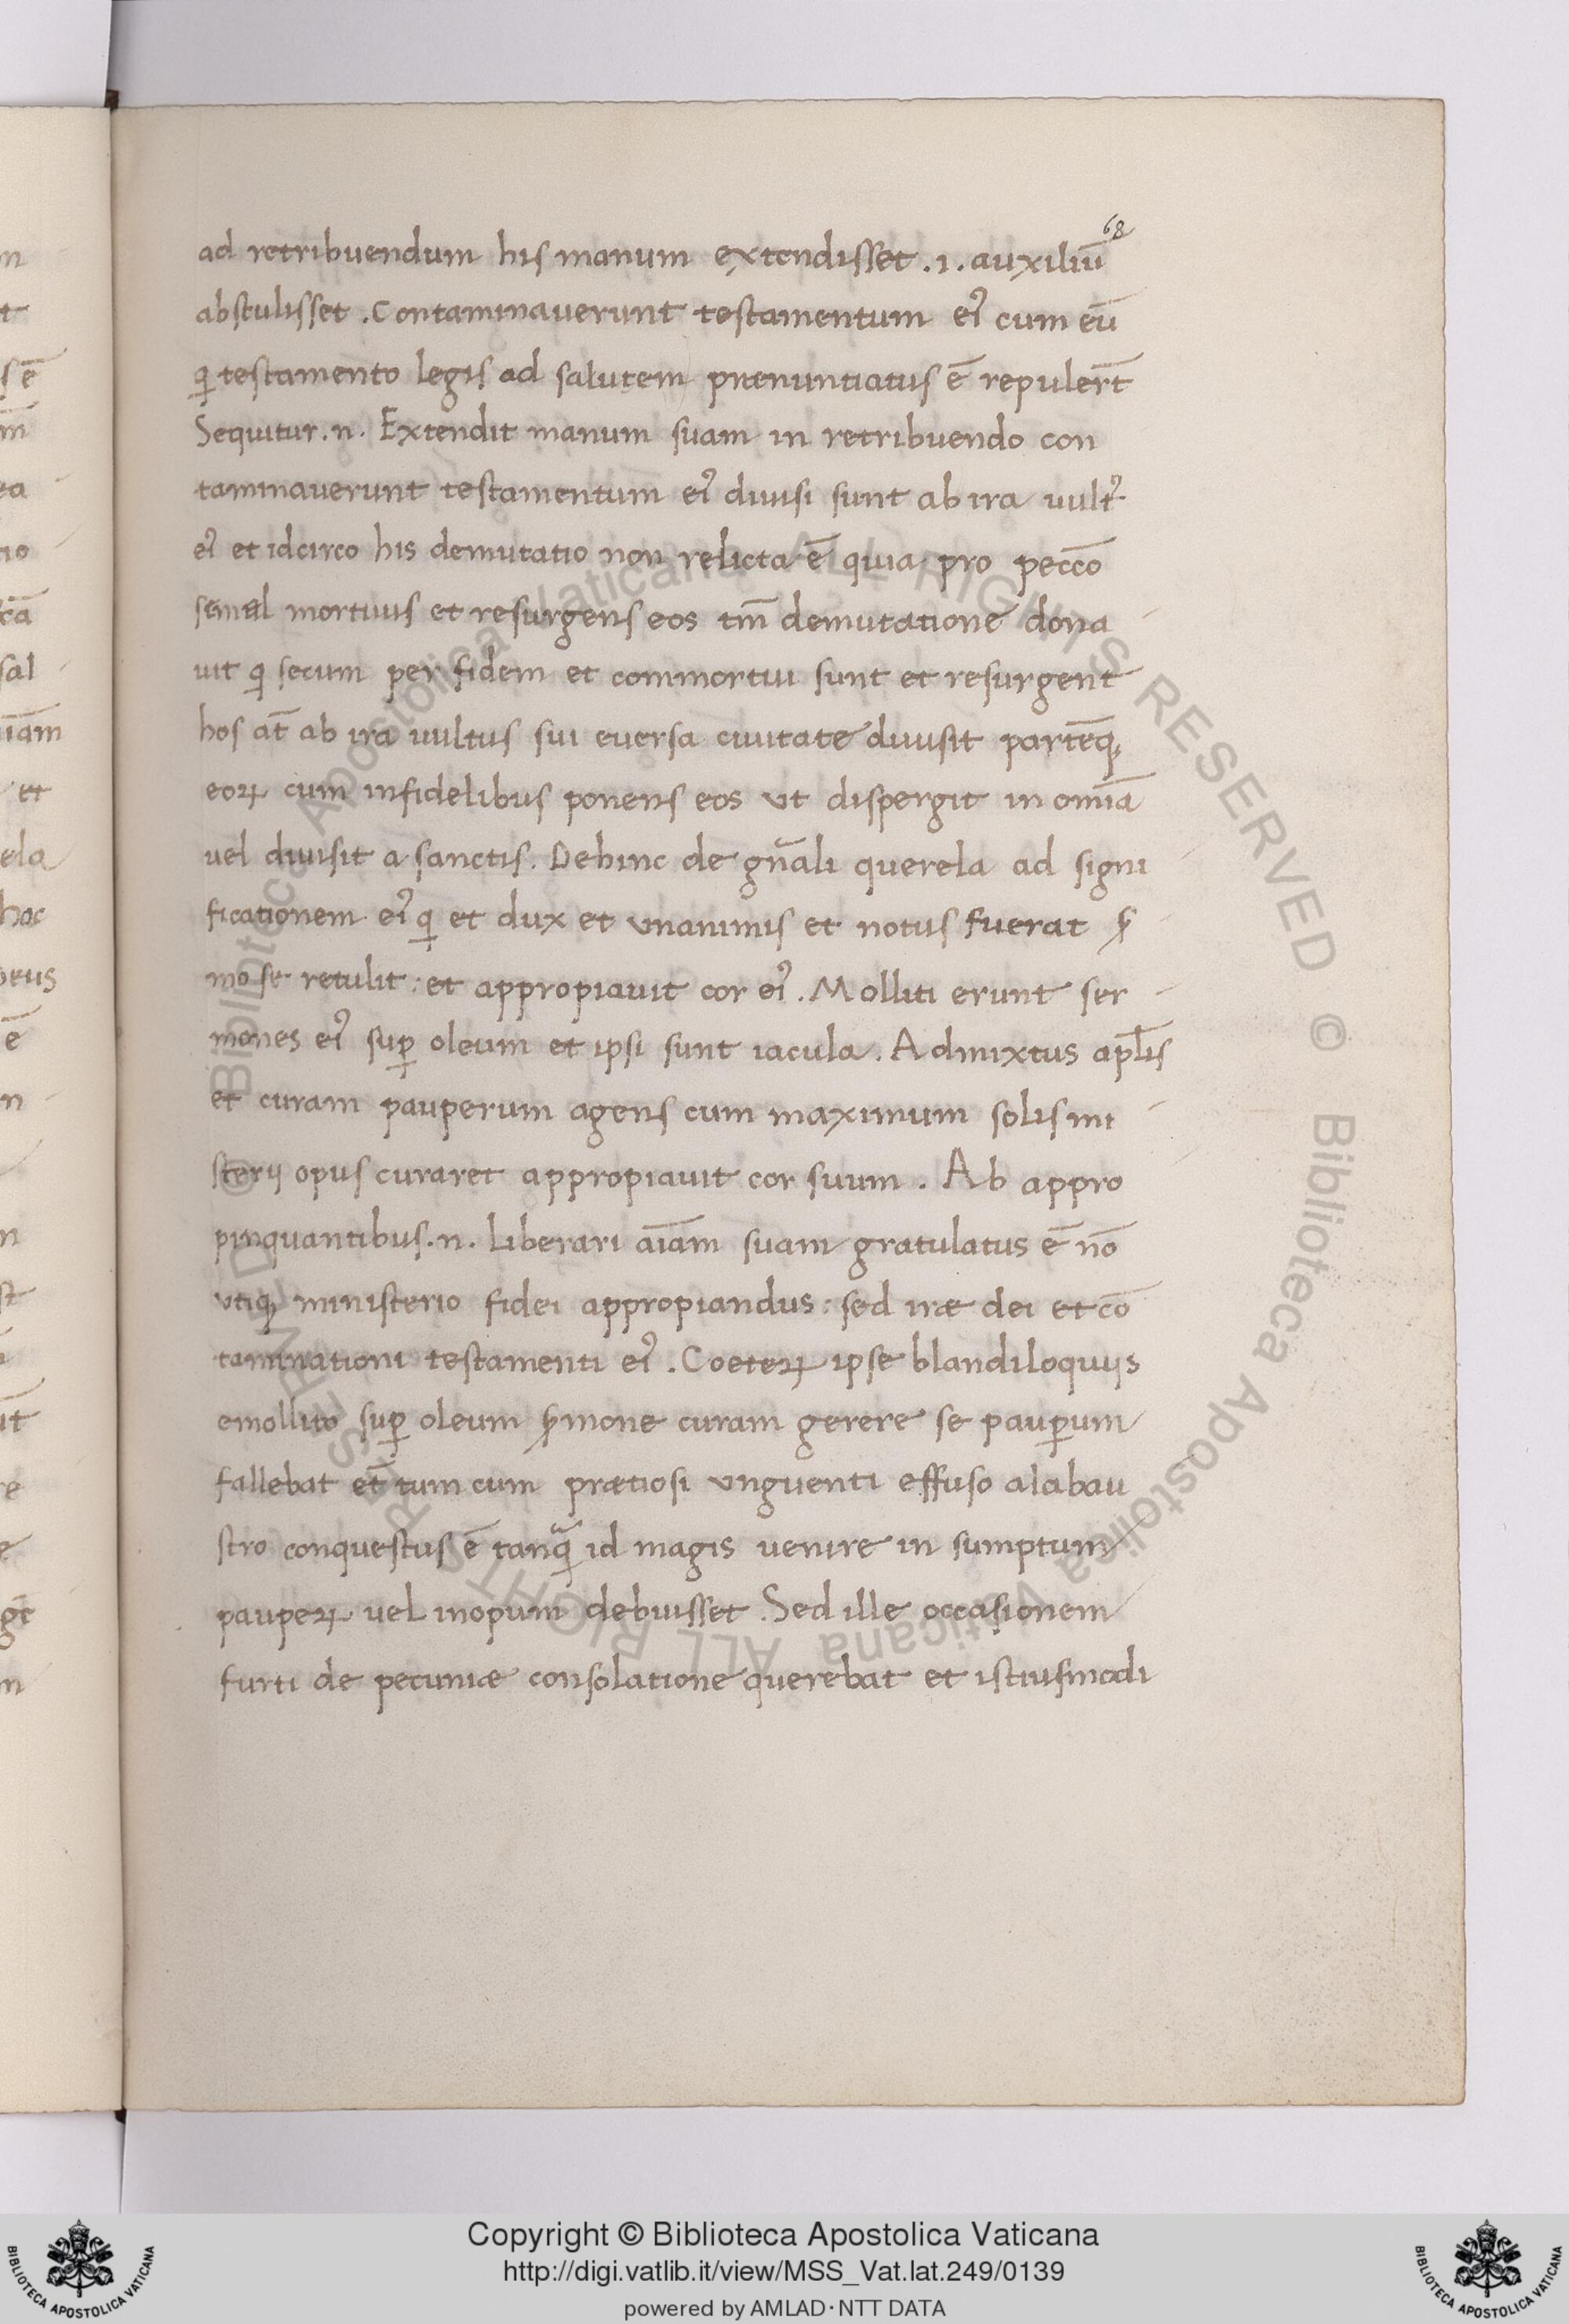 68
ad retribuendum his manum extendisset .i. auxiliū
abstulisset . Contaminauerunt testamentum eiꝰ cum eū
qi testamento legis ad salutem prænuntiatus ē repuler̄t
Sequitur .n. Extendit manum suam in retribuendo con
taminauerunt testamentum eiꝰ diuisi sunt ab ira uultꝰ
eiꝰ et idcirco his demutatio non relicta ē quia pro pecc̄o
semel mortuus et resurgens eos tm̄ demutatione dona
uit qi secum per fidem et commortui sunt et resurgent
hos at̄ ab ira uultus sui euersa ciuitate diuisit partēqꝫ
eoꝝ cum infidelibus ponens eos vt dispergit in omīa
vel diuisit a sanctis . Dehinc de gn̄ali querela ad signi
ficationem eiꝰ qi et dux et vnanimis et notus fuerat ẜ
mo se retulit : et appropiauit cor eiꝰ . Molliti erunt ser
mones eiꝰ suꝑ oleum et ipsi sunt iacula . Admixtus apl̄is
et curam pauperum agens cum maximum solis mi
sterij opus curaret appropiauit cor suum . Ab appro
pinquantibus .n. liberari aīam suam gratulatus ē nō
vtiqꝫ ministerio fidei appropiandus : sed iræ dei et cō
taminationi testamenti eiꝰ . Coeteꝝ ipse blandiloquijs
emollito suꝑ oleum ẜmone curam gerere se pauꝑum
fallebat et̄ tum cum prætiosi vnguenti effuso alabau
stro conquestus ē tanq̄ id magis venire in sumptum
paupeꝝ vel inopum debuisset . Sed ille occasionem
furti de pecuniæ consolatione querebat et istiusmodi
Copyright © Biblioteca Apostolica Vaticana
http://digi.vatlib.it/view/MSS_Vat.lat.249/0139
powered by AMLAD · NTT DATA
BIBLIOTECA APOSTOLICA VATICANA
BIBLIOTECA APOSTOLICA VATICANA
© Biblioteca Apostolica Vaticana ALL RIGHTS RESERVED © Biblioteca Apostolica Vaticana ALL RIGHTS RESERVED